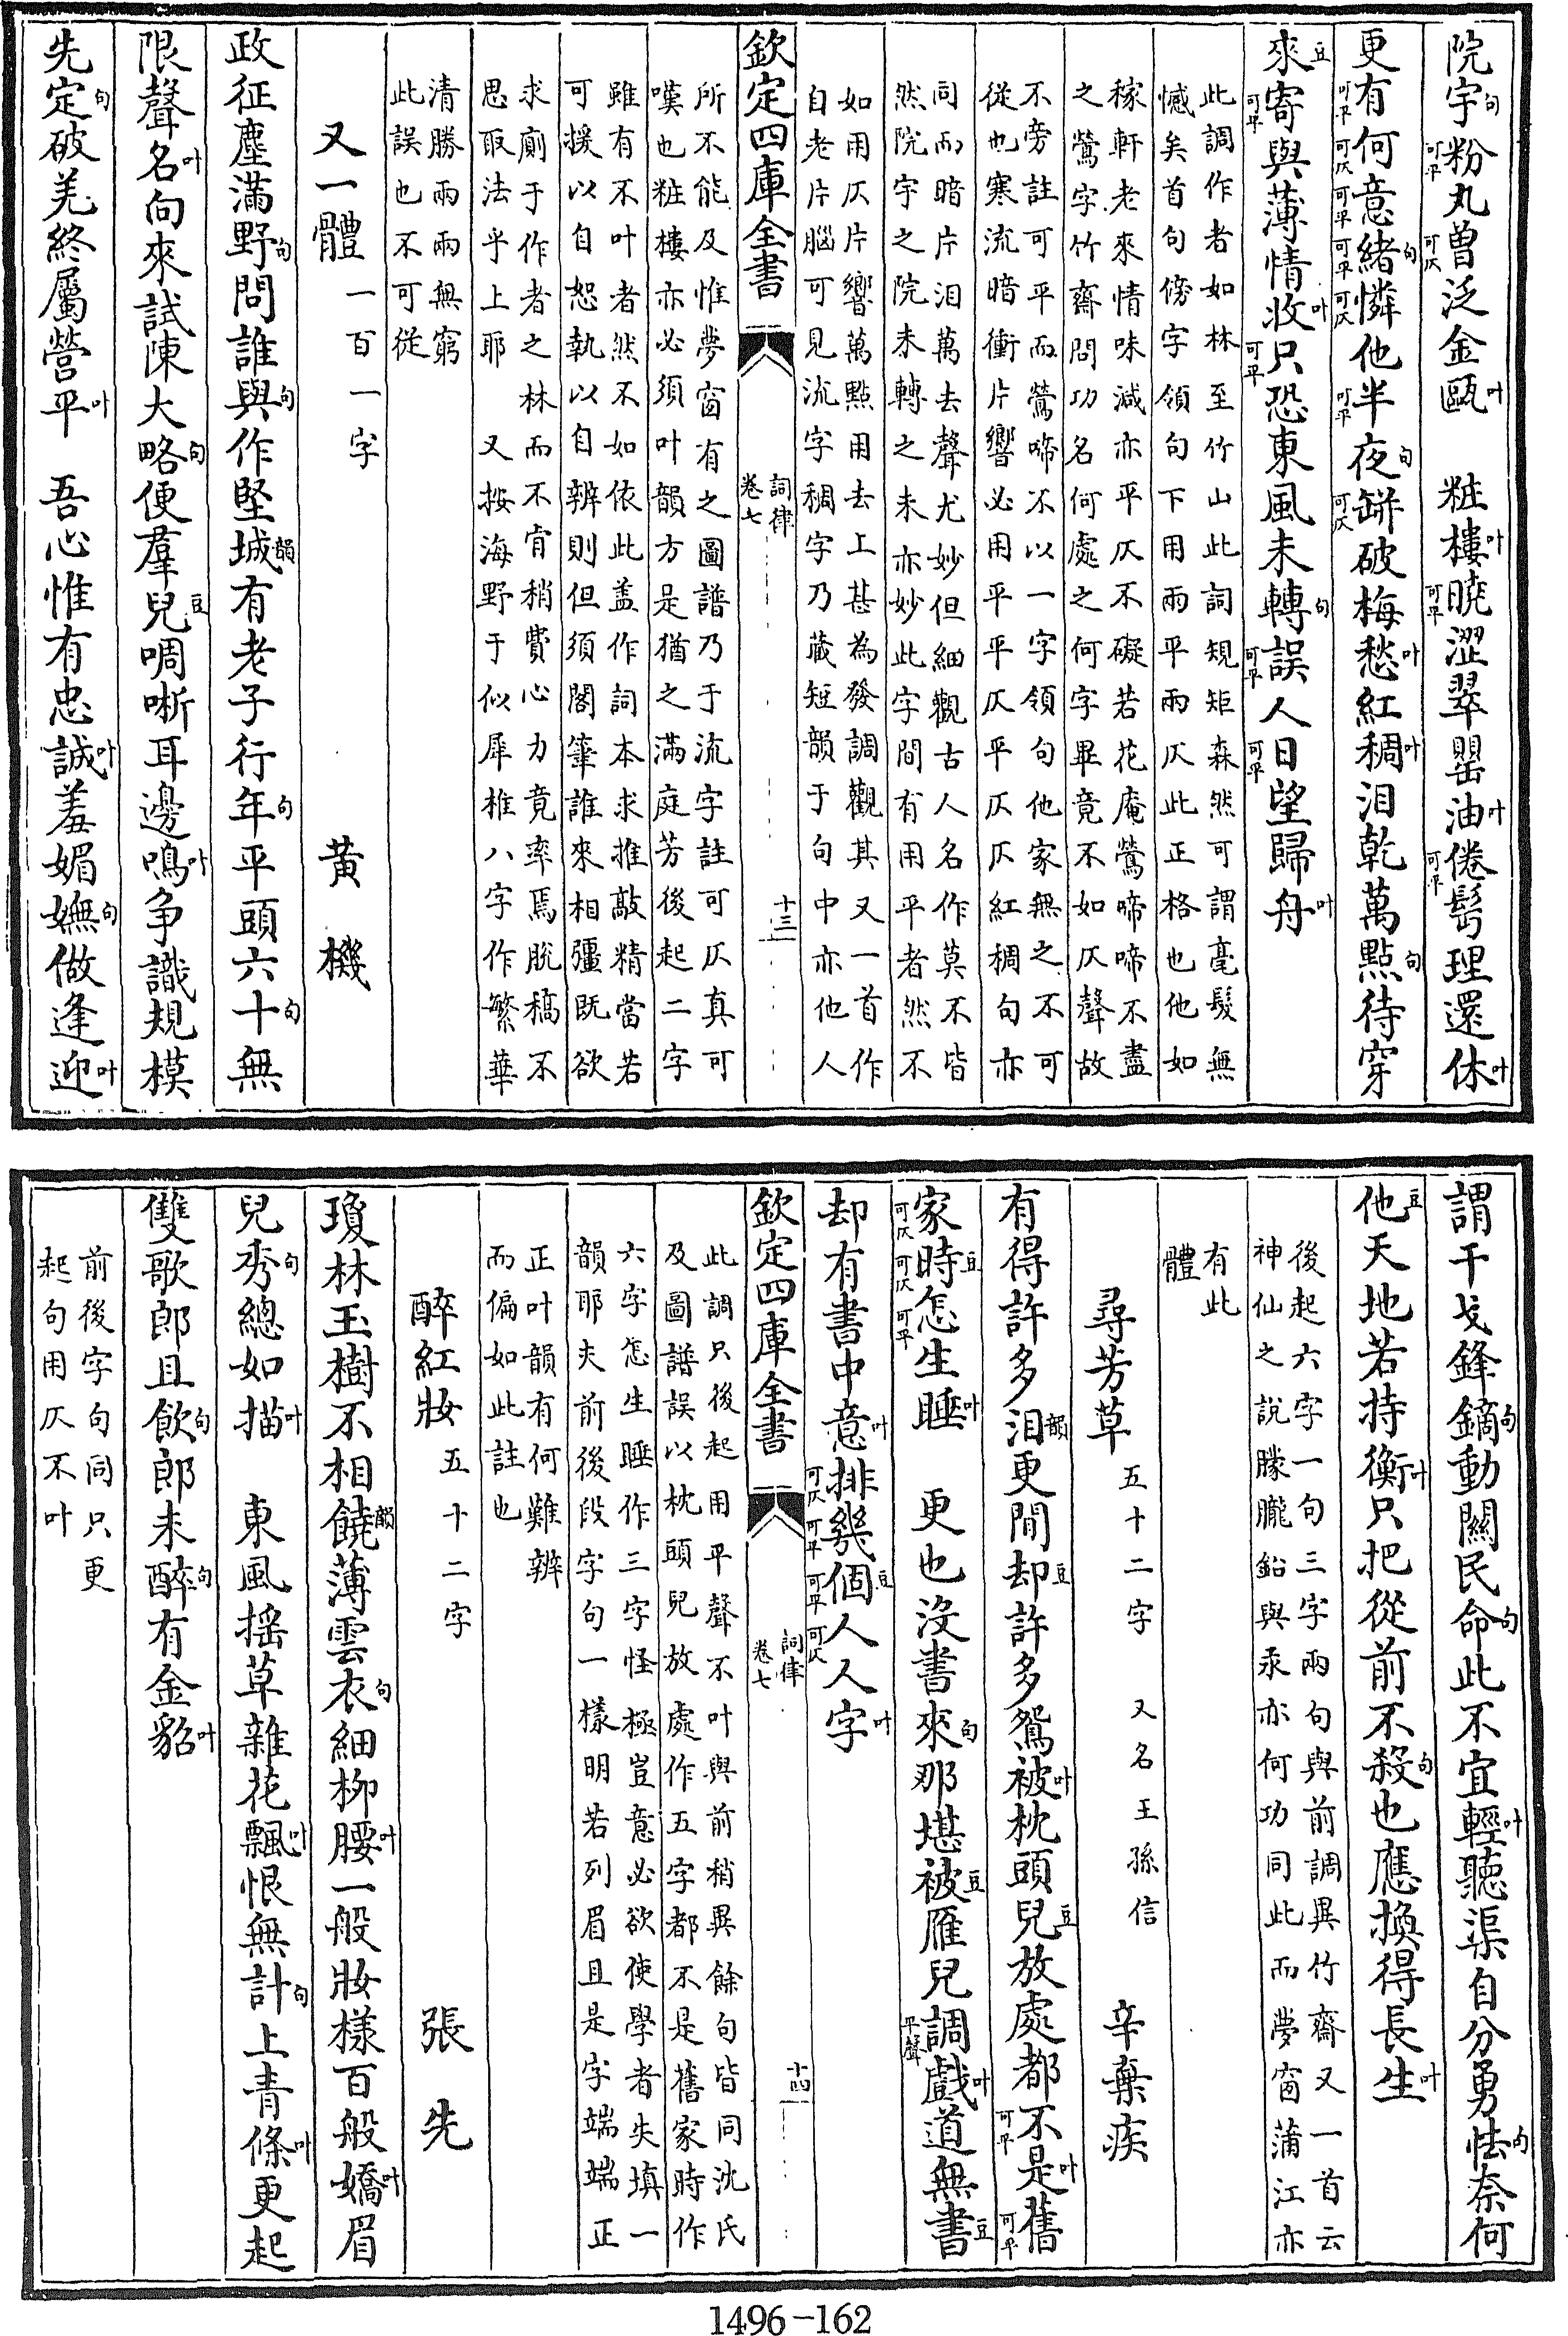 院宇句粉可平丸曽可仄泛金甌叶　粧樓叶曉可平澀翠罌油叶倦可平鬢理還休叶
更可平有何可仄意可平緒句可平憐可仄他半可平夜句缾可仄破梅愁叶紅稠叶泪乾萬點句待穿
來豆寄可平與薄情收叶只可平恐東風未轉句誤可平人日可平望歸舟叶
此調作者如林至竹山此詞規矩森然可謂毫髮無
憾矣首句傍字領句下用兩平兩仄此正格也他如
稼軒老來情味減亦平仄不礙若花庵鶯啼啼不盡
之鶯字竹齋問功名何處之何字畢竟不如仄聲故
不旁註可平而鶯啼不以一字領句他家無之不可
從也寒流暗衝片響必用平平仄平仄仄紅稠句亦
同而暗片泪萬去聲尤妙但細觀古人名作莫不皆
然院宇之院未轉之未亦妙此字間有用平者然不
如用仄片響萬點用去上甚為發調觀其又一首作
自老片腦可見流字稠字乃藏短韻于句中亦他人
欽定四庫全書　詞律　卷七　十三
所不能及惟夢窗有之圖譜乃于流字註可仄真可
嘆也粧樓亦必須叶韻方是猶之滿庭芳後起二字
雖有不叶者然不如依此葢作詞本求推敲精當若
可援以自恕執以自辨則但須閣筆誰來相彊既欲
求廁于作者之林而不肯稍費心力竟率焉脫稿不
思取法乎上耶　又按海野于似犀椎八字作繁華
清勝兩兩無窮
此誤也不可從
又一體　一百一字　黄機
政征塵滿野句問誰與句作堅城韻有老子行年句平頭六十句無
限聲名叶向來試陳大略句便羣兒豆啁哳耳邊鳴叶争識規模
先定句破羌終屬營平叶　吾心惟有忠誠叶羞媚嫵句做逢迎叶
謂干戈鋒鏑句動關民命句此不宜輕叶聽渠自分勇怯句柰何
他豆天地若持衡叶只把從前不殺句也應換得長生叶
後起六字一句三字兩句與前調異竹齋又一首云
神仙之說朦朧鉛與汞亦何功同此而夢窗蒲江亦
有此
體
尋芳草　五十二字　又名王孫信　辛棄疾
有得許多泪韻更閒却豆許多鴛被叶枕頭兒豆放處都不可平是叶舊可平
家可仄時豆可仄怎可平生睡叶　更也沒書來句那堪被豆雁兒調平聲戲叶道無書豆
却有書中意叶排可仄幾可平個豆可平人可仄人字叶
欽定四庫全書　詞律　卷七　十四
此調只後起用平聲不叶與前稍異餘句皆同沈氏
及圖譜誤以枕頭兒放處作五字都不是舊家時作
六字怎生睡作三字怪極豈意必欲使學者失填一
韻耶夫前後段字句一樣明若列眉且是字端端正
正叶韻有何難辨
而偏如此註也
醉紅妝　五十二字　張先
瓊林玉樹不相饒韻薄雲衣句細柳腰叶一般妝樣百般嬌叶眉
兒秀句總如描叶　東風摇草雜花飄叶恨無計句上青條叶更起
雙歌郎且飲句郎未醉句有金貂叶
前後字句同只更
起句用仄不叶
1496-162